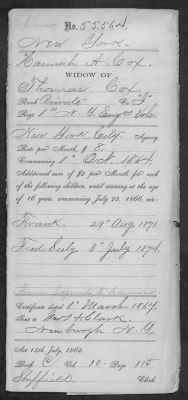 No. 55564,
New York.
Hannah A. Cox.
WIDOW OF
Thomas Cox,
Rank Private Co. F.
Reg't 1st N.Y. Eng'rs Vols
New York City Agency
Rate per Month, $8.
Commencing 1st Oct. 1864.
Additional sum of $2 per Month for each
of the following children, until arriving at the age
of 16 years, commencing July 25, 1866, viz:
Frank. 29" Aug 1870
Fred Seely 3" July 1874.
Certificate dated 1st March 1867
Sent to
Newburgh N.Y.
Act 14th July, 1862.
Book C Vol. 10 Page 115
Sheffield, Clerk.